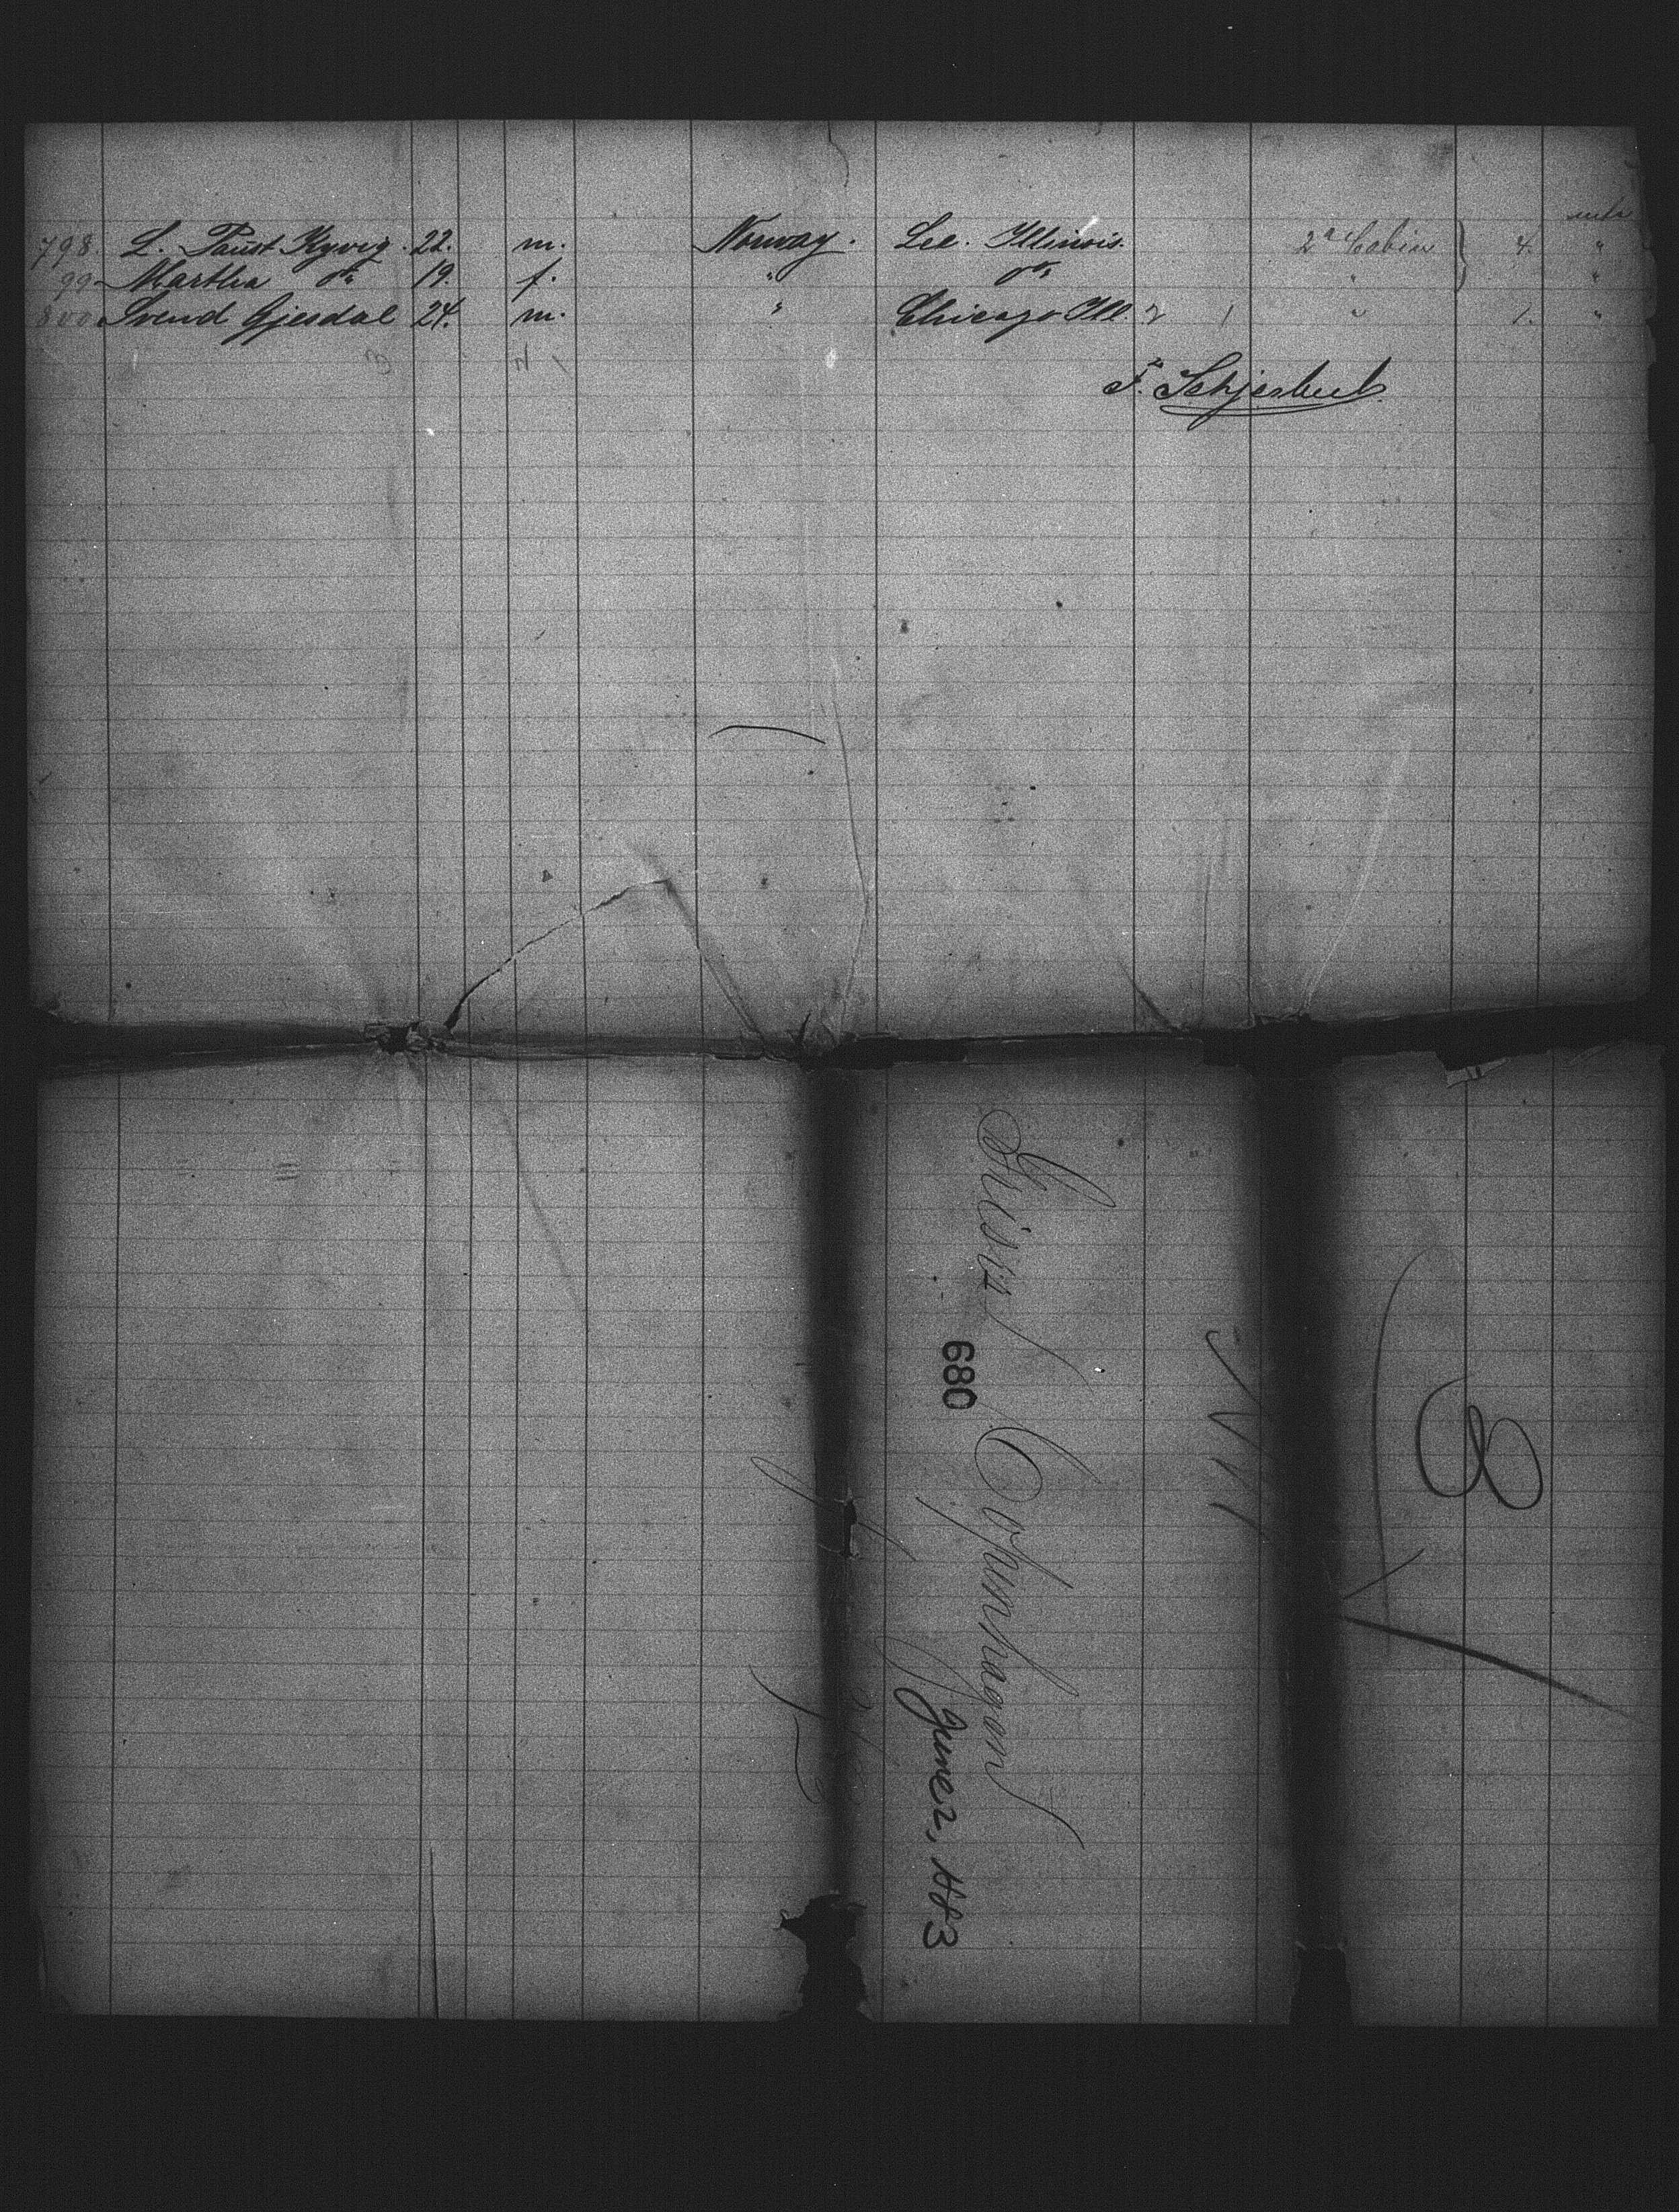 798. L. Paust Kyvig. 22. m. Norway. Lee. Illinois. 2d Cabin } 4. "
99 Martha do 19. f. " do " "
800 Svend Gjesdal 24. m. " Chicago Ill. 2 1 " 1. "
3
F. Schjerbeck
Geiser
Copenhagen
680
June 2, 1883